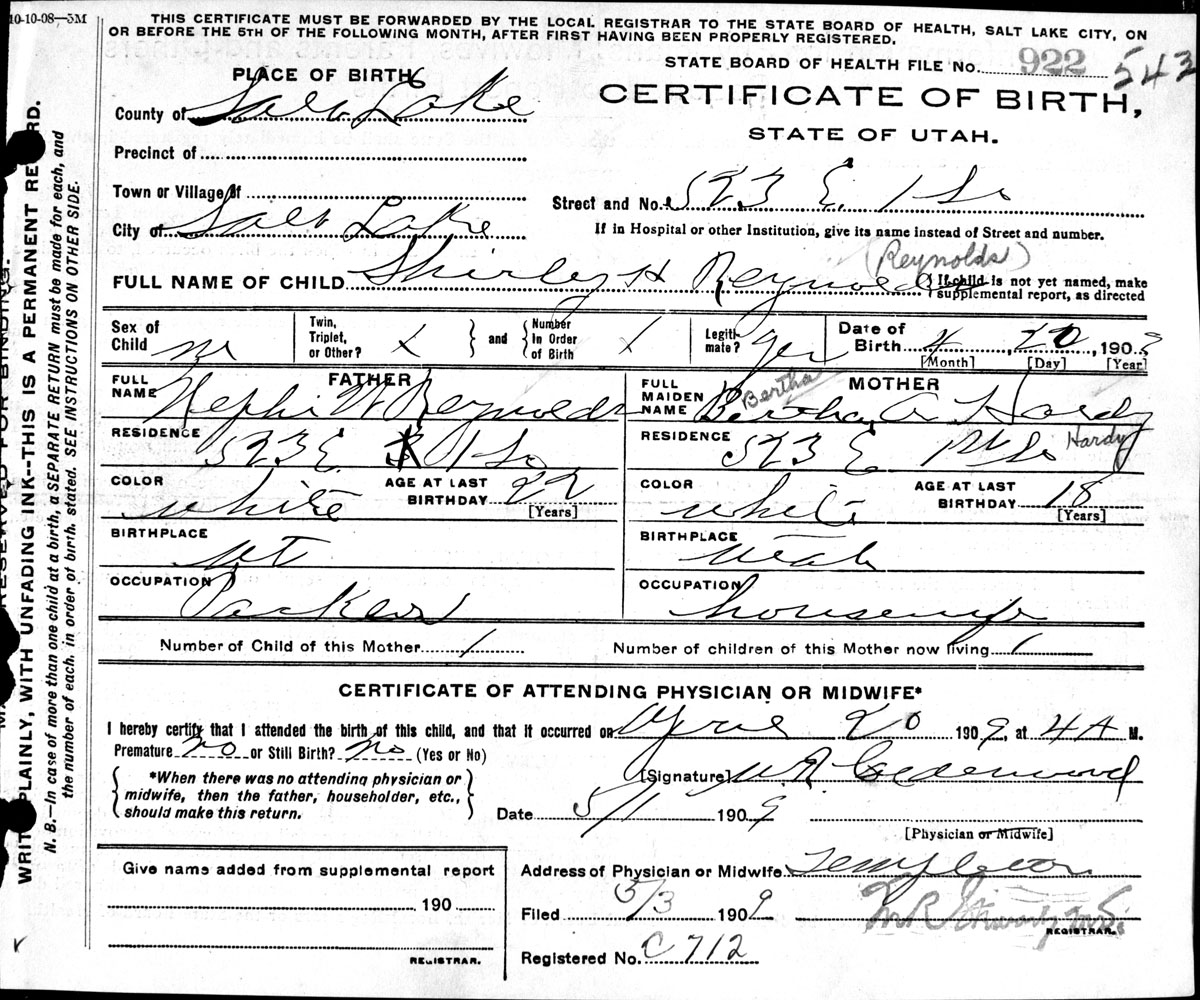 10-10-08—5M
THIS CERTIFICATE MUST BE FORWARDED BY THE LOCAL REGISTRAR TO THE STATE BOARD OF HEALTH, SALT LAKE CITY, ON
OR BEFORE THE 5TH OF THE FOLLOWING MONTH, AFTER FIRST HAVING BEEN PROPERLY REGISTERED.
STATE BOARD OF HEALTH FILE No. 922 543
PLACE OF BIRTH
CERTIFICATE OF BIRTH,
STATE OF UTAH.
County of Salt Lake
Precinct of
Town or Village of
Street and No. 523 E. 1 So
City of Salt Lake
If in Hospital or other Institution, give its name instead of Street and number.
(Reynolds)
FULL NAME OF CHILD Shirley H Reynolds { If child is not yet named, make
supplemental report, as directed
Sex of Child m
Twin, Triplet, or Other? x } and { Number In Order of Birth x
Legitimate? yes
Date of Birth 4, 20, 1909
[Month] [Day] [Year]
FATHER
FULL NAME Nephi W Reynolds
RESIDENCE 523 E. 1 So
COLOR white AGE AT LAST BIRTHDAY 22
[Years]
BIRTHPLACE ut
OCCUPATION Packer
MOTHER
FULL MAIDEN NAME Bertha A Hardy
Bertha
Hardy
RESIDENCE 523 E So
COLOR white AGE AT LAST BIRTHDAY 18
[Years]
BIRTHPLACE utah
OCCUPATION housewife
Number of Child of this Mother 1 Number of children of this Mother now living 1
CERTIFICATE OF ATTENDING PHYSICIAN OR MIDWIFE*
I hereby certify that I attended the birth of this child, and that it occurred on April 20 1909, at 4 A M.
Premature no or Still Birth? no (Yes or No)
{ *When there was no attending physician or
midwife, then the father, householder, etc.,
should make this return. }
[Signature] W. R. Calderwood
Date 5/1 1909
[Physician or Midwife]
Give name added from supplemental report
190
REGISTRAR.
Address of Physician or Midwife Templeton
Filed 5/3 1909
REGISTRAR.
Registered No. C 712
RESERVED FOR BINDING.
WRITE PLAINLY, WITH UNFADING INK--THIS IS A PERMANENT RECORD.
N. B.—In case of more than one child at a birth, a SEPARATE RETURN must be made for each, and
the number of each, in order of birth, stated. SEE INSTRUCTIONS ON OTHER SIDE.